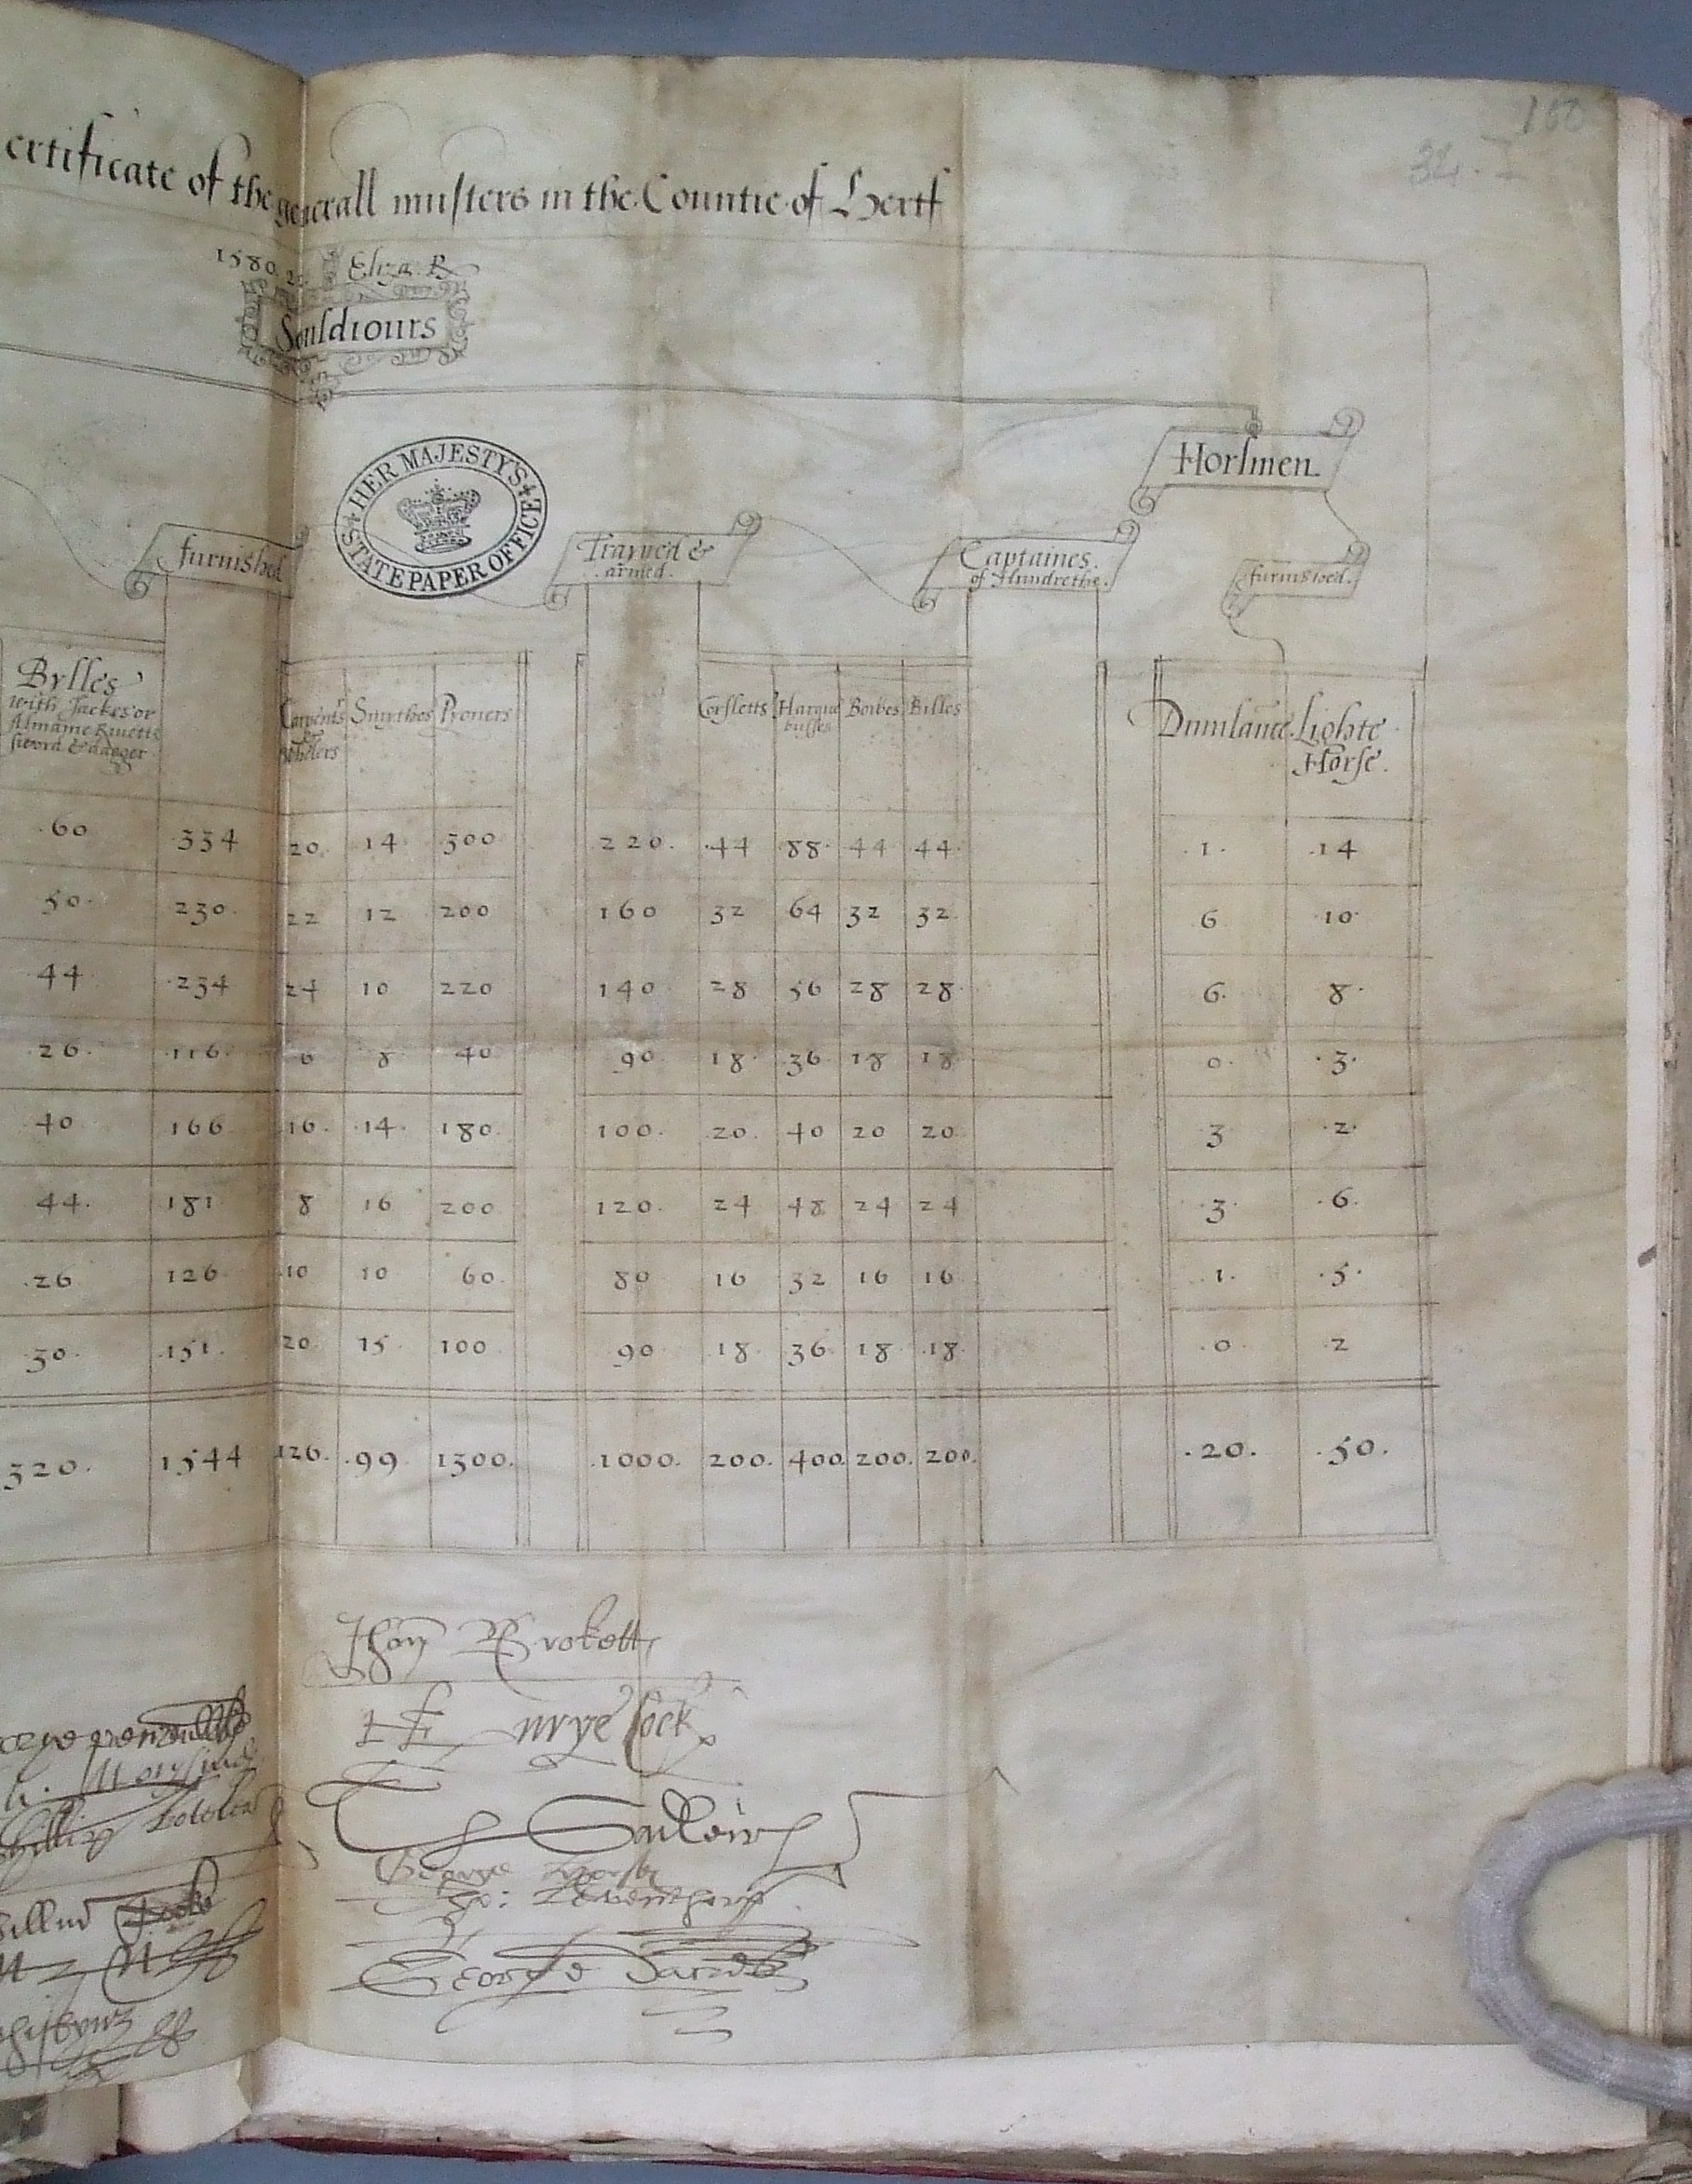 100
32. I
ertificate of the generall musters in the Countie of Hertf
1580. Eliza. R
Souldiours
HER MAJESTY'S STATE PAPER OFFICE
Horsmen
furnished
Trayned &
armed.
Captaines.
of Hundrethe.
furnished.
Bylles
with Jackes or
Almaine Rivetts
sword & dagger
Carpent's Smythes Pyoners
Corsletts Harque Bowes Billes
busses
Dimilance. Lighte
Horse.
60 334 20 14 300 220. 44 88 44 44 1. 14
50 230 22 12 200 160 32 64 32 32 6 10
44 234 24 10 220 140 28 56 28 28 6. 8
26. 116 6 8 40 90 18 36 18 18 0. 3.
40 166 16. 14 180 100. 20. 40 20 20 3 2
44. 181 8 16 200 120. 24 48 24 24 3 6
26 126 10 10 60. 80 16 32 16 16 1. 5
30. 151. 20 15 100 90 18 36 18 18 0 2
320. 1544 126. 99 1300. 1000. 200. 400 200. 200. 20. 50.
Jhon Brokett
Henrye Cock
Th Sadleir
George Horsey
George